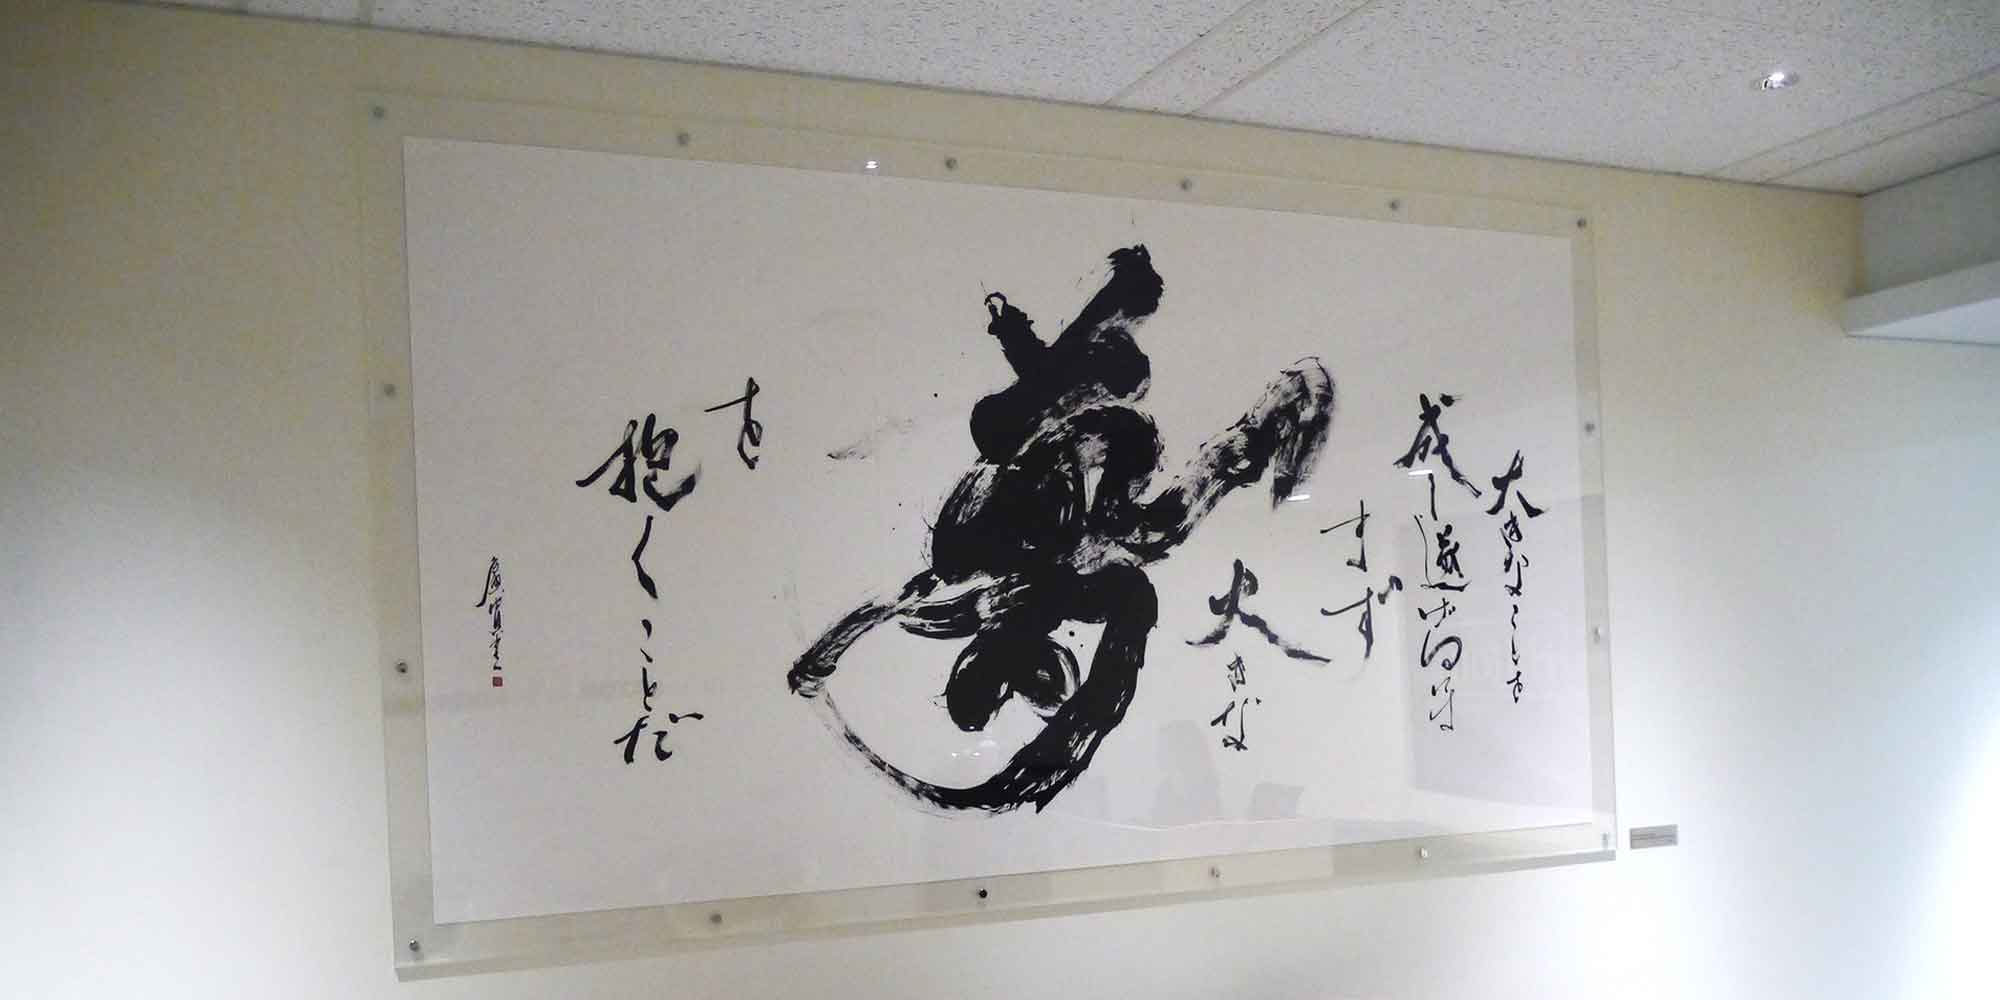 大きなことを
成し遂げるには
まず
大きな
夢
を
抱くことだ